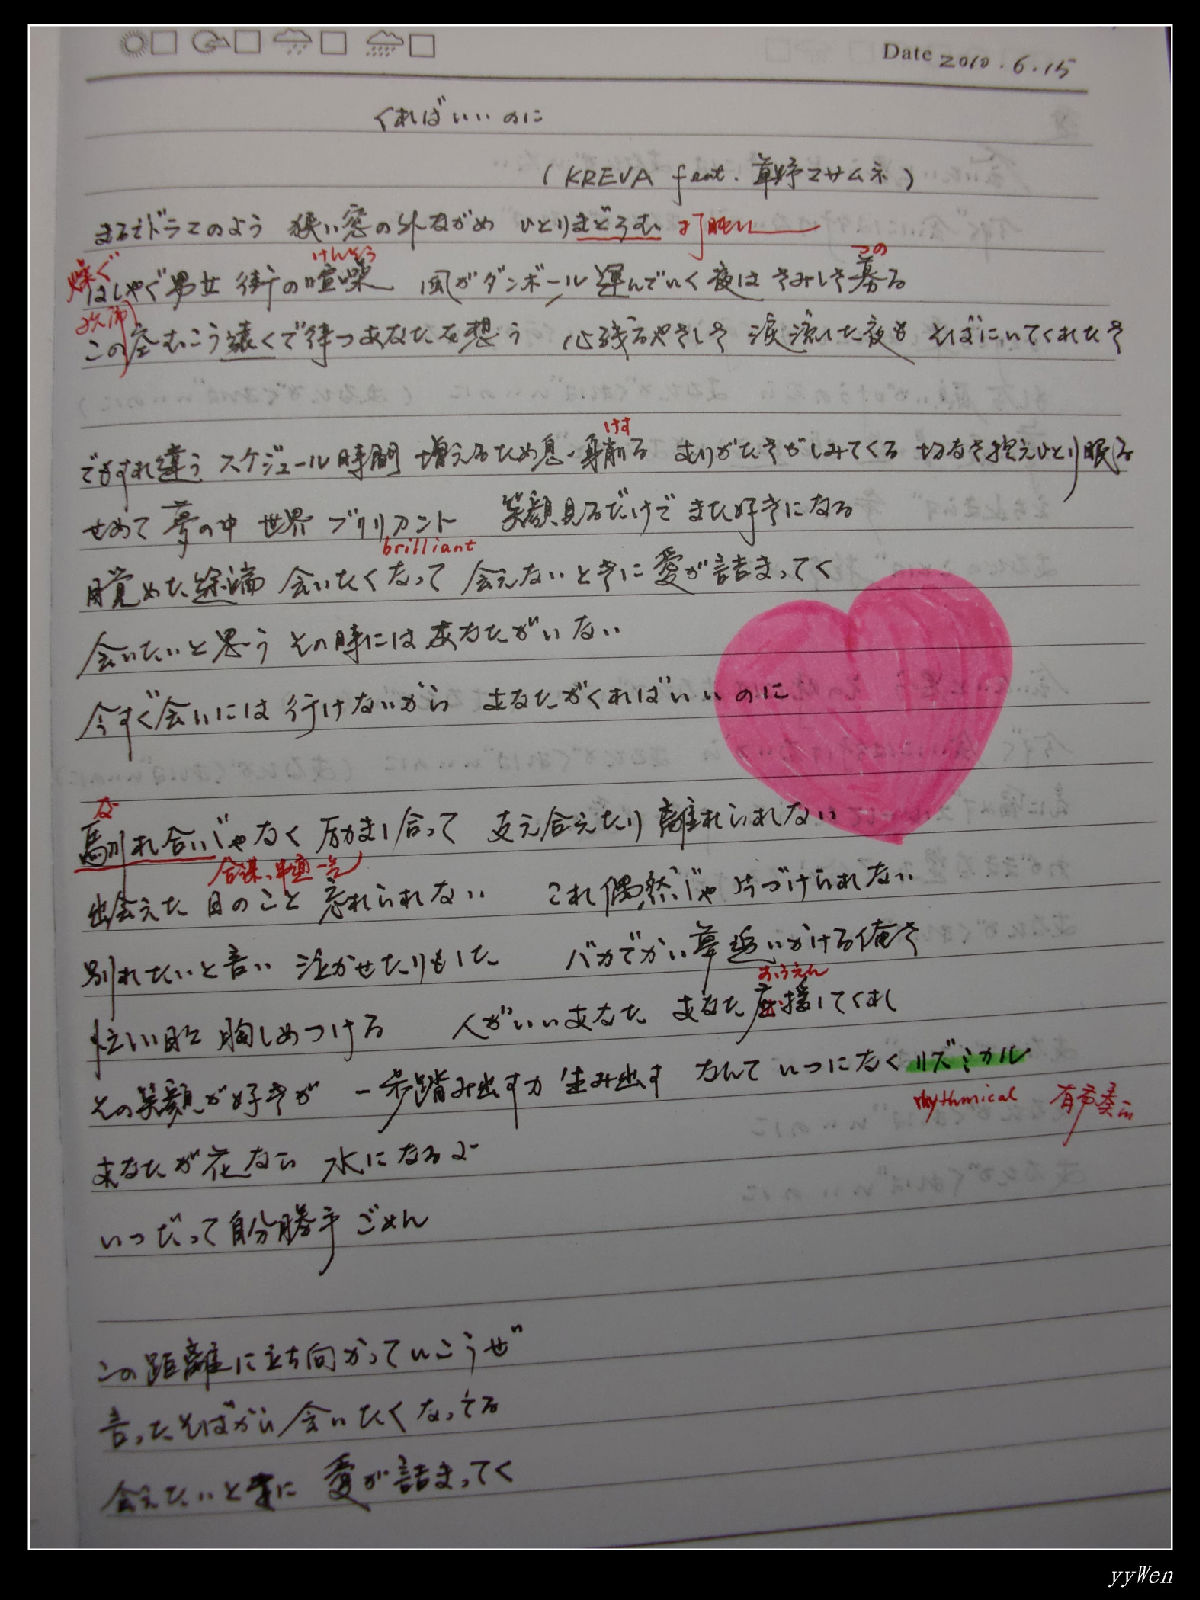 Date 2010.6.15
くればいいのに
(KREVA feat. 草野マサムネ)
まるでドラマのよう 狭い窓の外ながめ ひとりまどろむ 打瞌睡
燥ぐ けんそう つの
はしゃぐ男女 街の喧噪 風がダンボール運んでいく夜は さみしさ募る
この空むこう遠くで待つあなたを想う 心残るやさしさ 涙流した夜も そばにいてくれたさ
けず
でもすれ違う スケジュール時間 増えるため息・身削る ありがたさがしみてくる 切なさ抱えひとり眠る
せめて夢の中 世界 ブリリアント 笑顔見るだけで また好きになる
brilliant
目覚めた途端 会いたくなって 会えないときに愛が詰まってく
会いたいと思う その時には あなたがいない
今すぐ会いには行けないから あなたがくればいいのに
な
馴れ合いじゃなく 励まし合って 支え合えたり 離れられない
合谋、串通一气
出会えた日のこと 忘れられない これ偶然じゃ片づけられない
別れたいと言い 泣かせたりもした バカでかい夢追いかける俺さ
おうえん
忙しい日々 胸しめつける 人がいいあなた あなた応援してくれし
その笑顔が好きが 一歩踏み出す力 生み出す なんて いつになくリズミカル
rhythmical 有节奏
あなたが花なら 水になるよ
いつだって自分勝手 ごめん
この距離に立ち向かっていこうぜ
言ったそばから 会いたくなってる
会えないときに 愛が詰まってく
yyWen